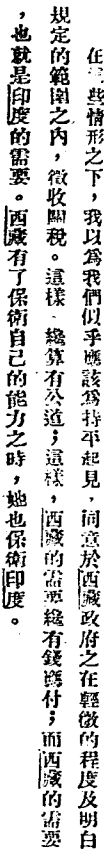 在這些情形之下，我以爲我們似乎應該爲持平起見，同意於西藏政府之在輕微的程度及明白
規定的範圍之內，徵收關稅。這樣，纔算有公道；這樣，西藏的需要纔有錢應付；而西藏的需要
，也就是印度的需要。西藏有了保衛自己的能力之時，她也保衛印度。